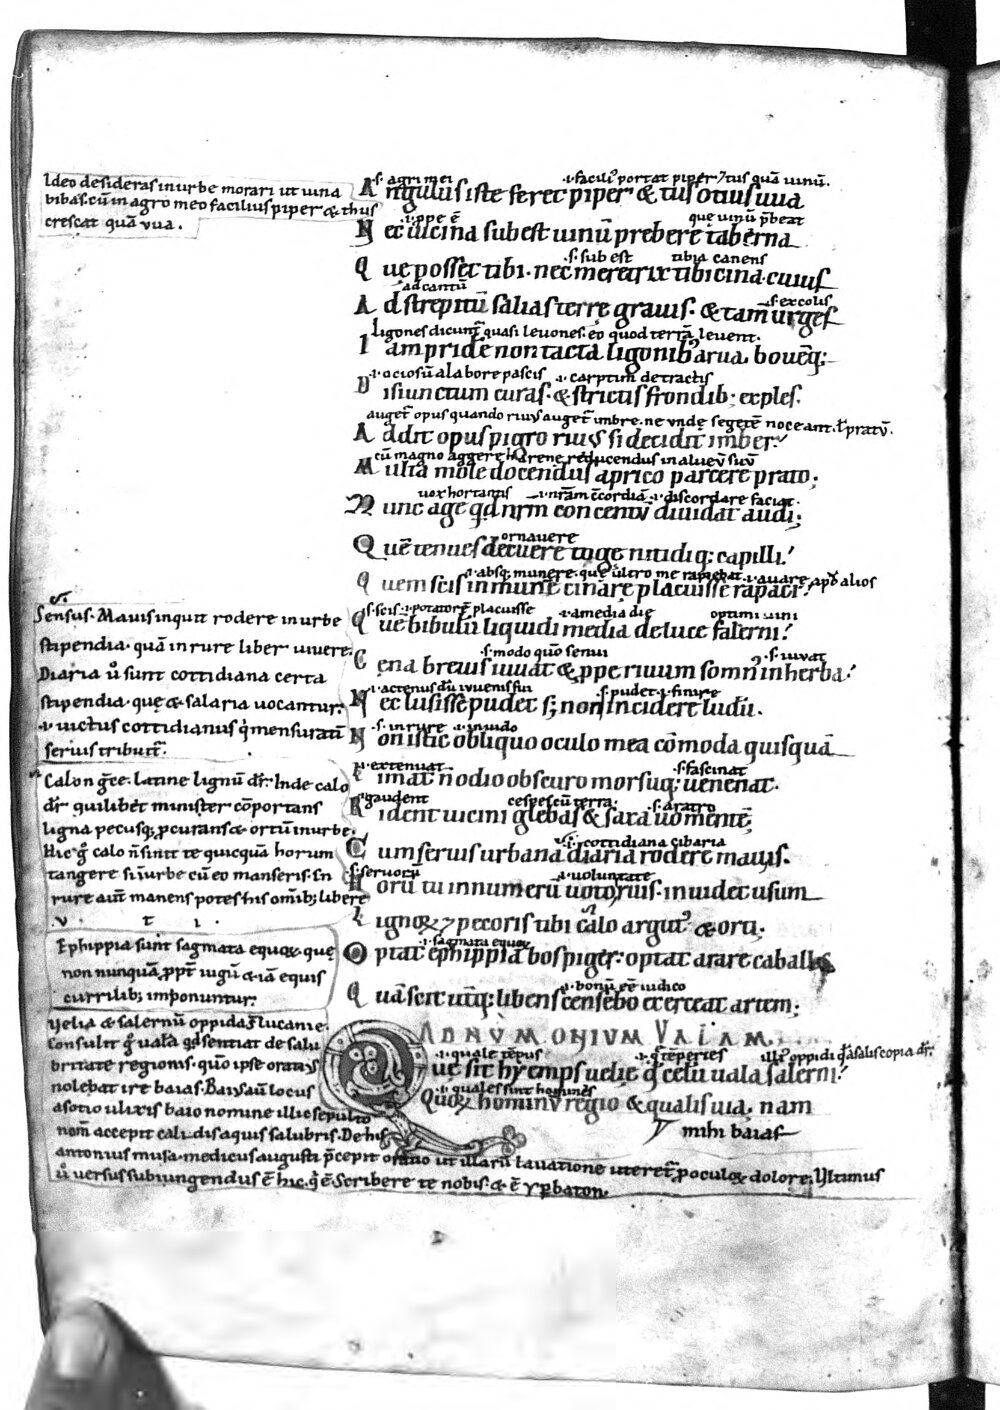 Ideo desideras in urbe morari ut uina
bibas. cū in agro meo facilius piper & thus
crescat quā vua.
.s. agri mei .i. facili⁹ portat piper ⁊ tus quā uinū.
Angulus iste feret piper & tus otius uua
.i. ppe ē que uinū p̄beat
Nec uicina subest uinū prebere taberna
.s. sub est tibia canens
Que posset tibi. nec meretrix tibicina. cuius
ad cantū .s. ex colis
Ad strepitū salias terre grauis. & tam̄ urges
ligones dicunt̄ quasi leuones. eo quod terrā leuent.
Iam pridē non tacta ligonib⁹ arua. boueq;
.i. ociosū a labore pascis .i. carptim detractis
Disiunctum curas. & strictis frondib; exples.
auget̄ opus quando riuus auget̄ imbre. ne unde segetē noceant. ł pratū.
Addit opus pigro riuus si decidit imber.
cū magno aggere harene reducendus in alueū suū
Multa mole docendus aprico parcere prato;
uox hortantis .i. nr̄am c̄cordiā .i. discordare faciat.
Nunc age qd nr̄m concentū diuidat audi;
ornauere
Quē tenues decuere toge nitidiq; capilli.
.i. absq; munere. que ultro me rapiebat .i. auare. apd̄ alios
Quem scis inmunē cinare placuisse rapaci.
.s. scis .i. potatorē placuisse .i. a media die optimi uini
Que bibulū liquidi media de luce falerni.
.s. modo quo senui .s. iuuat
Cena breuis iuuat & ppe riuum somn⁹ in herba.
.i. actenus dū iuuenis fui .s. pudet .i. finire
Nec lusisse pudet s; non incidere ludū.
.s. in rure .i. inuido
Non istic obliquo oculo mea cōmoda quisquā
.i. extenuat .s. fascinat
Limat n̄ odio obscuro morsuq; uenenat.
.s. gaudent cespes cū terra; .s. aratro
Rident uicini glebas & saxa uomentē;
.s. .i. cottidiana cibaria
Cum seruis urbana diaria rodere mauis.
.s. seruorū .i. uoluntate
Horū tu in numerū uoto ruis. inuidet usum
Lignoꝝ ⁊ pecoris tibi calo argut⁹ & orti;
.i. sagmata equoꝝ
Optat ephippia bos piger: optat arare caballus
.i. bonū eē iudico
Quā scit utq; libens censebo exerceat artem;
Sensus. Mauis inquit rodere in urbe
stipendia. quā in rure liber uiuere.
Diaria u̇ sunt cottidiana certa
stipendia. que & salaria uocantur.
.i. uictus cottidianus q̇ mensuratū
seruis tribuit̄.
Calon gr̄ce. latine lignū dr̄. Inde calo
dr̄ quilibet minister cōportans
ligna pecusq; p̱curans & ortū in urbe.
Hic g̊ calo n̄ sinit te quicquā horum
tangere si in urbe cū eo manseris. In
rure aut̄ manens potes his om̄ib; libere
.v. t i.
Ephippia sunt sagmata equoꝝ. que
non nunquā p̱pt̄ iugū & iā equis
currilib; imponuntur.
AD NVMONIVM VALAM.
.i. quale tēpus .i. q̄ tēperies illi⁹ oppidi q̇a salis copia dr̄.
Que sit hyemps uelie q̄ celū uala salerni.
.i. quales sint homines
Quoꝝ hominū regio & qualis uia. nam
mihi baias
Velia & salernū oppida s̄ lucanie.
Consulit g̊ ualā qd sentiat de salu
britate regionis. quō ipse oratius
nolebat ire baias. Baiȷ aū locus
a sotio ulixis baio nomine illic sepulto
nom̄ accepit calidis aquis salubris. De his
antonius musa. medicus augusti p̄cepit oratio ut illarū lauatione uteret̄ p̱ oculoꝝ dolore. Ultimus
u̇ versus subiungendus ē hic. q̇ ē Scribere te nobis. & ē yp̱baton.